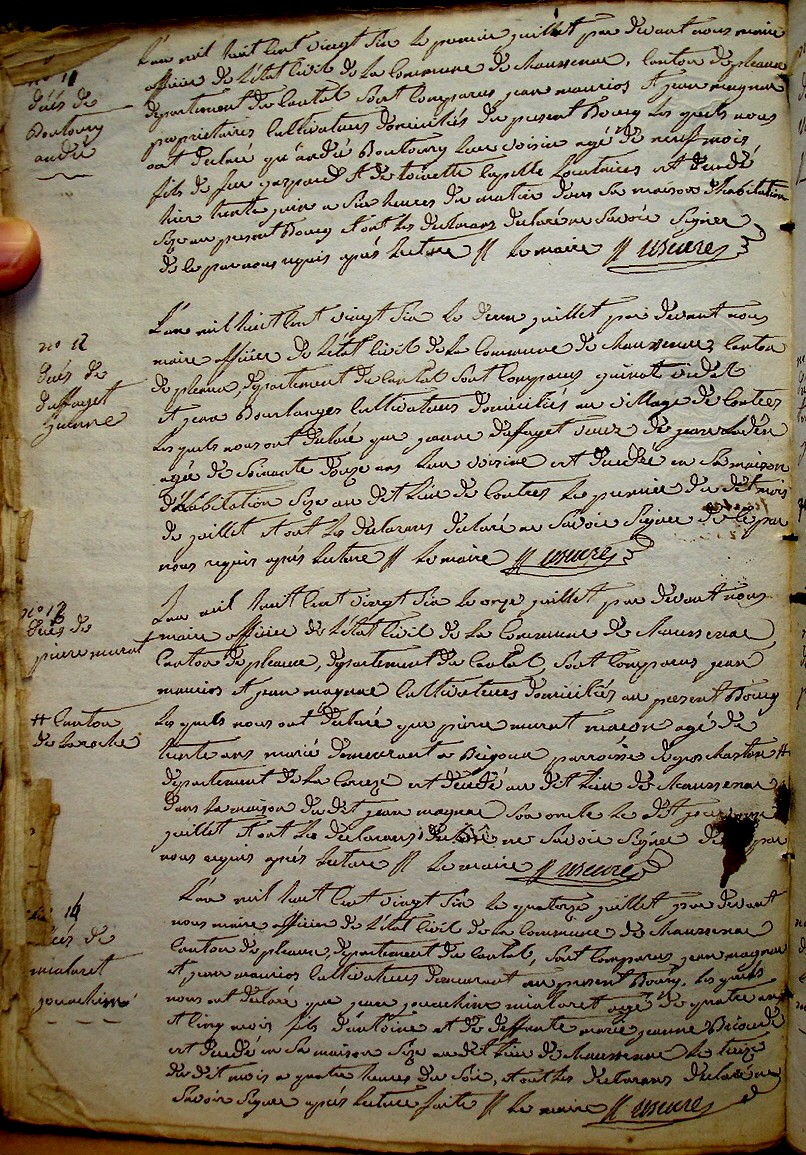 n° 11
décés de
Boutourry
andré
L'an mil huit cent vingt six le premier juillet par devant nous maire
officier de l'état civil de la commune de Maussenac, canton de pleaux
département du Cantal sont comparus jean maurios et jean magnac
propriétaires cultivateurs domiciliés du present Bourg les quels nous
ont déclaré qu'andré Boutourry leur voisin agé de neuf mois
fils de feu gaspard et de toinette Capelle est decedé
hier trente juin a six heures du matin dans sa maison d'habitation
size au present Bourg et ont les declarans declaré ne savoir signer
de ce par nous requis aprés lecture // Le maire //
n° 12
décés de
duffayet
jeanne
L'an mil huit cent vingt six le deux juillet par devant nous
maire officier de l'état civil de la commune de Maussenac, canton
de pleaux, département du cantal sont comparus guinot
et jean Boulanger cultivateurs domiciliés au village de Contres
les quels nous ont déclaré que jeanne duffayet veuve de jean
agée de soixante douze ans leur voisine est decedée en sa maison
d'habitation size au dit lieu de Contres le premier du dit mois
de juillet et ont les declarans declaré ne savoir signer de ce par
nous requis aprés lecture // Le maire //
n° 13
décés de
pierre murat
L'an mil huit cent vingt six le onze juillet par devant nous
maire officier de l'état civil de la commune de Maussenac
canton de pleaux, département du Cantal, sont comparus jean
maurios et jean magnac cultivateurs domiciliés au present Bourg
# Canton
de Laroche
les quels nous ont déclaré que pierre murat macon agé de
trente ans marié demeurant a parroisse de gros chastan #
département de la Correze est decedé au dit lieu de Maussenac
dans la maison du dit jean magnac son oncle le dit jour onze
juillet et ont les declarans declaré ne savoir signer de ce par
nous requis aprés lecture // Le maire //
14
décés de
mialaret
jouachim
L'an mil huit cent vingt six le quatorze juillet par devant
nous maire officier de l'état civil de la commune de Maussenac
canton de pleaux, département du Cantal, sont comparus jean magnac
et jean maurios cultivateurs demeurant au present Bourg, les quels
nous ont déclaré que jean jouachim mialaret agé de quatre ans
et cinq mois fils d'antoine et de deffunte marie jeanne
est decedé en sa maison size au dit lieu de Maussenac le treize
du dit mois a quatre heures du soir, et ont les declarans declaré ne
savoir signer aprés lecture faite // Le maire //